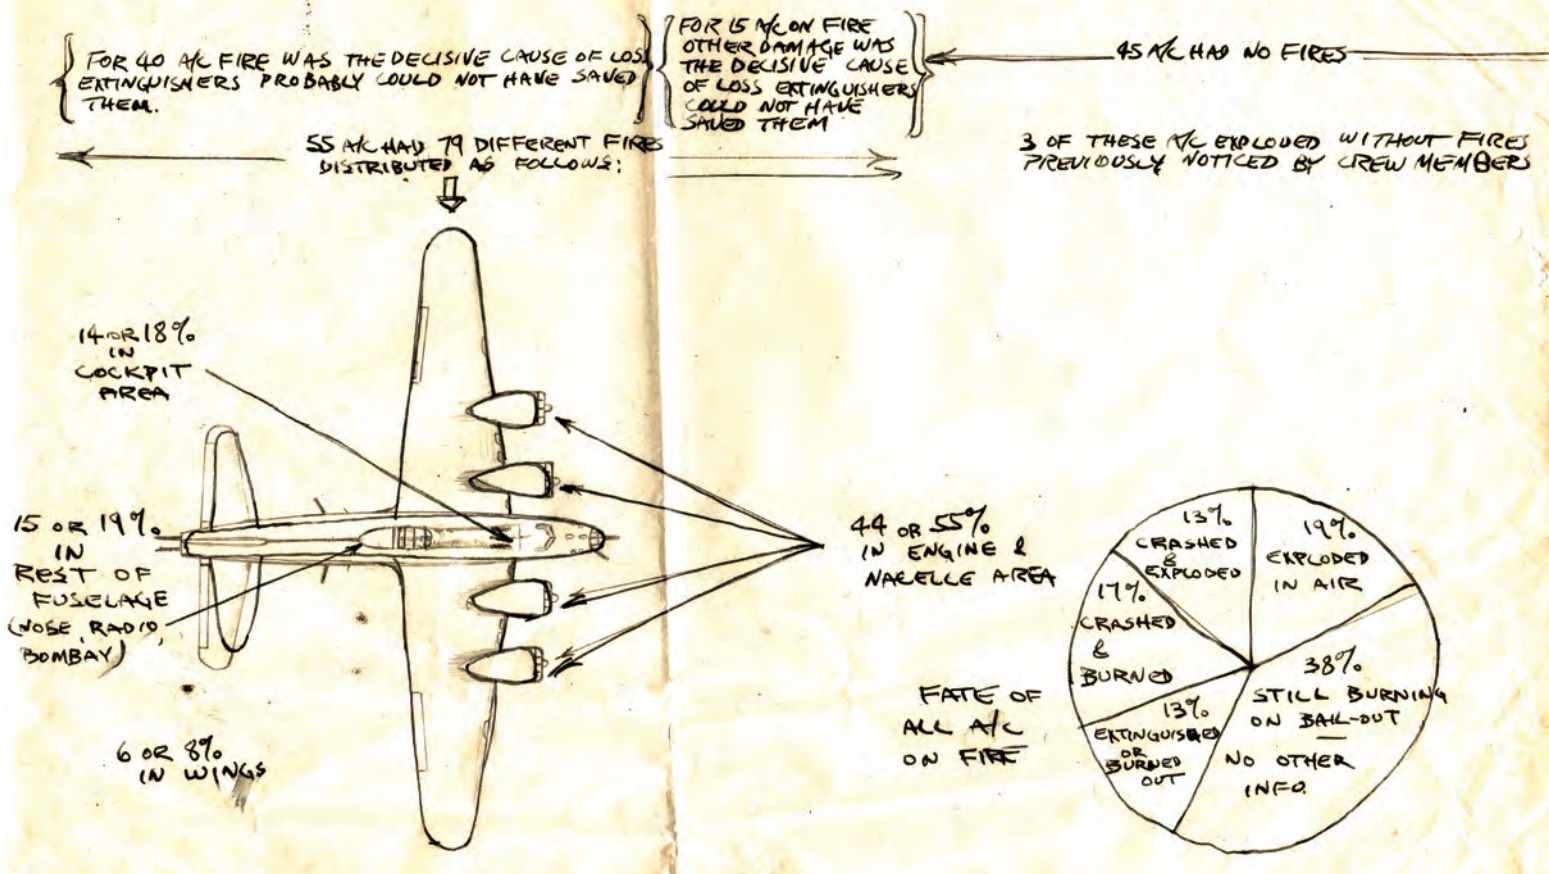 FOR 40 A/C FIRE WAS THE DECISIVE CAUSE OF LOSS
EXTINGUISHERS PROBABLY COULD NOT HAVE SAVED
THEM.
FOR 15 A/C ON FIRE
OTHER DAMAGE WAS
THE DECISIVE CAUSE
OF LOSS EXTINGUISHERS
COULD NOT HAVE
SAVED THEM
45 A/C HAD NO FIRES
3 OF THESE A/C EXPLODED WITHOUT FIRES
PREVIOUSLY NOTICED BY CREW MEMBERS
55 A/C HAD 79 DIFFERENT FIRES
DISTRIBUTED AS FOLLOWS:
14 OR 18%
IN
COCKPIT
AREA
15 OR 19%
IN
REST OF
FUSELAGE
(NOSE, RADIO,
BOMBAY)
6 OR 8%
IN WINGS
44 OR 55%
IN ENGINE &
NACELLE AREA
FATE OF
ALL A/C
ON FIRE
13%
CRASHED
&
EXPLODED
19%
EXPLODED
IN AIR
17%
CRASHED
&
BURNED
13%
EXTINGUISHED
OR
BURNED
OUT
38%
STILL BURNING
ON BAIL-OUT
NO OTHER
INFO.